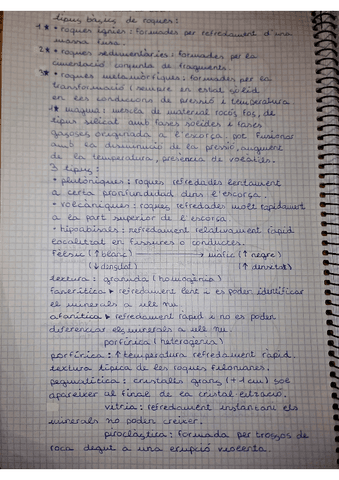 tipus bàsics de roques:
1★ • roques ígnies: formades per refredament d'una
massa fusa.
2★ • roques sedimentàries: formades per la
cimentació conjunta de fragments.
3★ • roques metamòrfiques: formades per la
transformació (sempre en estat sòlid
en les condicions de pressió i temperatura
1★ magma: mescla de material rocós fos, de
tipus silicat amb fases sòlides i fases
gasoses originada a l'escorça. pot fusionar
amb la disminució de la pressió, augment
de la temperatura, presència de volàtils.
3 tipus:
• plutòniques: roques refredades lentament
a certa profunditat dins l'escorça.
• volcàniques: roques refredades molt ràpidament
a la part superior de l'escorça.
• hipoabisals: refredament relativament ràpid
localitzat en fissures o conductes.
Fèlsic (↑ blanc) → màfic (↑ negre)
(↓ densitat) (↑ densitat)
textura: granuda (homogènia)
fanerítica ▸ refredament lent i es poden identificar
el minerals a ull nu.
afanítica ▸ refredament ràpid i no es poden
diferenciar els minerals a ull nu.
porfírica (heterogènia)
porfírica: ↑ temperatura refredament ràpid.
textura típica de les roques filonianes.
pegmatítica: cristalls grans (+1 cm) sol
aparèixer al final de la cristal·lització.
vítria: refredament instantani els
minerals no poden créixer.
piroclàstica: formada per trossos de
roca degut a una erupció violenta.